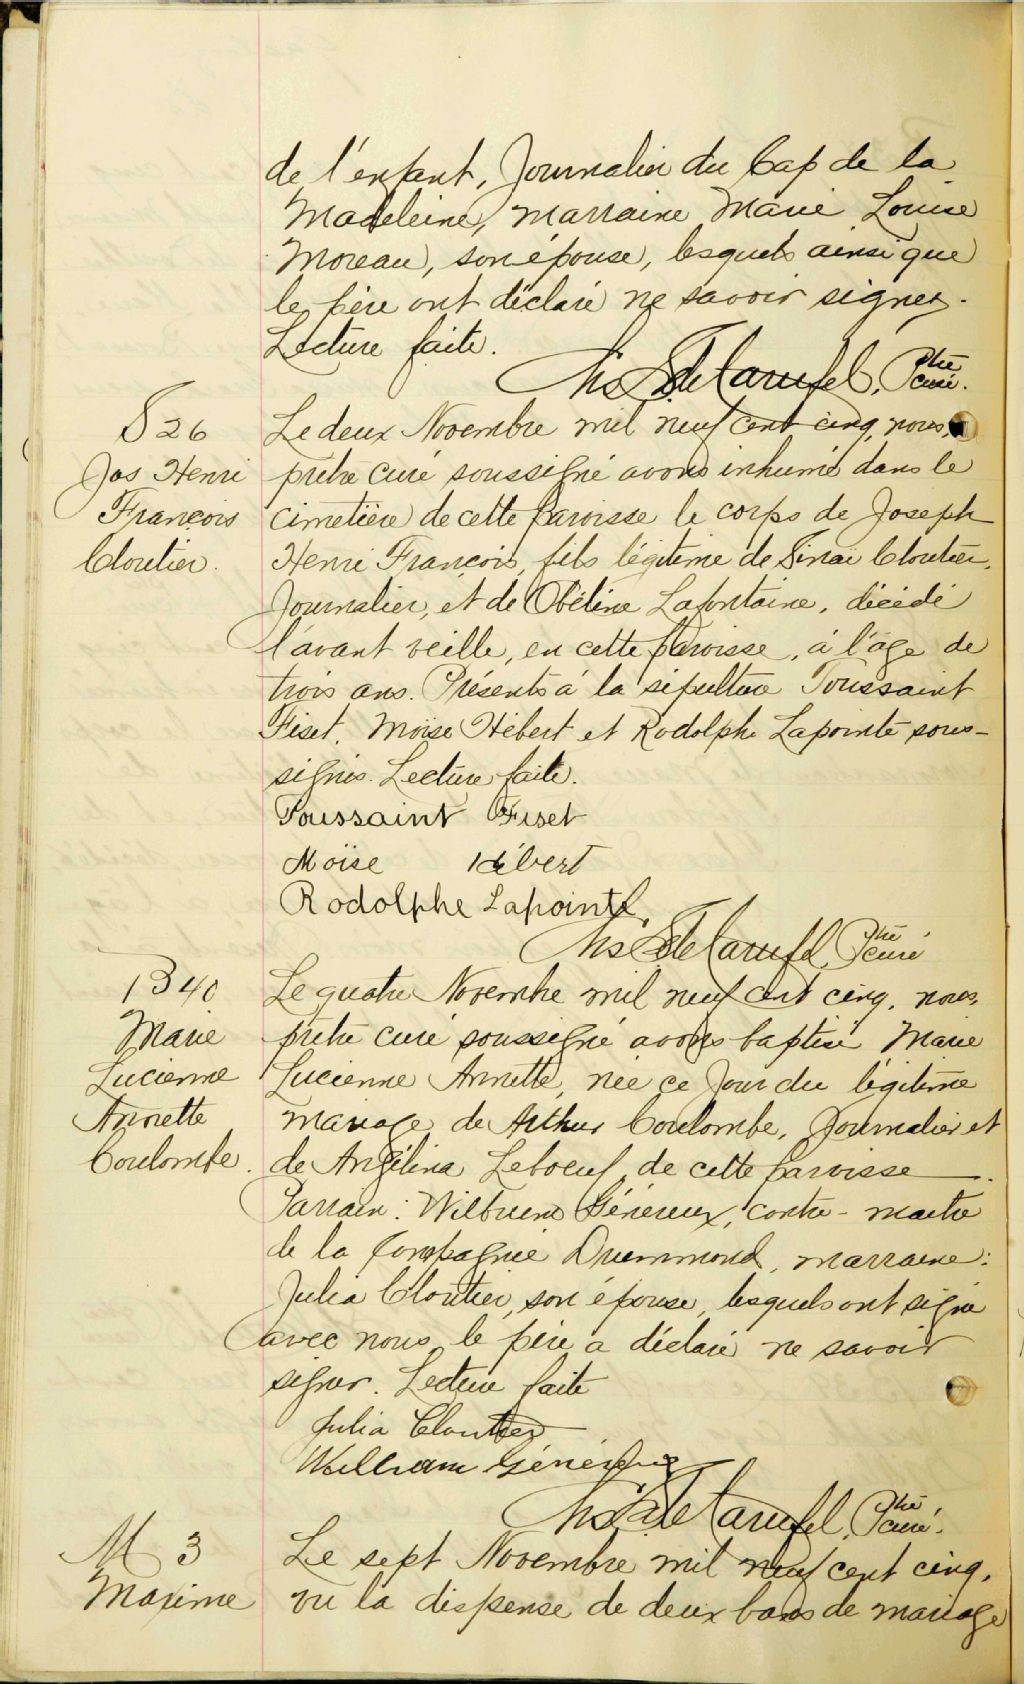 de l'enfant, Journalier du Cap de la
Madeleine, marraine Marie Louise
Moreau, son épouse, lesquels ainsi que
le père ont déclaré ne savoir signer.
Lecture faite.
Ptre curé.
S 26
Jos Henri
François
Cloutier.
Le deux Novembre mil neuf cent cinq, nous,
prêtre curé soussigné avons inhumé dans le
cimetière de cette paroisse le corps de Joseph
Henri François, fils légitime de Sinai Cloutier,
Journalier, et de Obéline Lafontaine, décédé
l'avant veille, en cette paroisse, à l'âge de
trois ans. Présents à la sépulture Toussaint
Fiset, Moïse Hébert et Rodolphe Lapointe sous-
signés. Lecture faite.
Toussaint Fiset
Moïse Hébert
Rodolphe Lapointe,
Ptre curé
B 40
Marie
Lucienne
Annette
Coulombe.
Le quatre Novembre mil neuf cent cinq, nous,
prêtre curé soussigné avons baptisé Marie
Lucienne Annette, née ce Jour du légitime
mariage de Arthur Coulombe, Journalier et
de Angélina Leboeuf, de cette paroisse.
Parrain: Généreux, contre-maitre
de la Compagnie Drummond, marraine:
Julia Cloutier, son épouse, lesquels ont signé
avec nous, le père a déclaré ne savoir
signer. Lecture faite
Julia Cloutier
William Généreux
Ptre curé.
M 3
Maxime
Le sept Novembre mil neuf cent cinq,
vu la dispense de deux bans de mariage